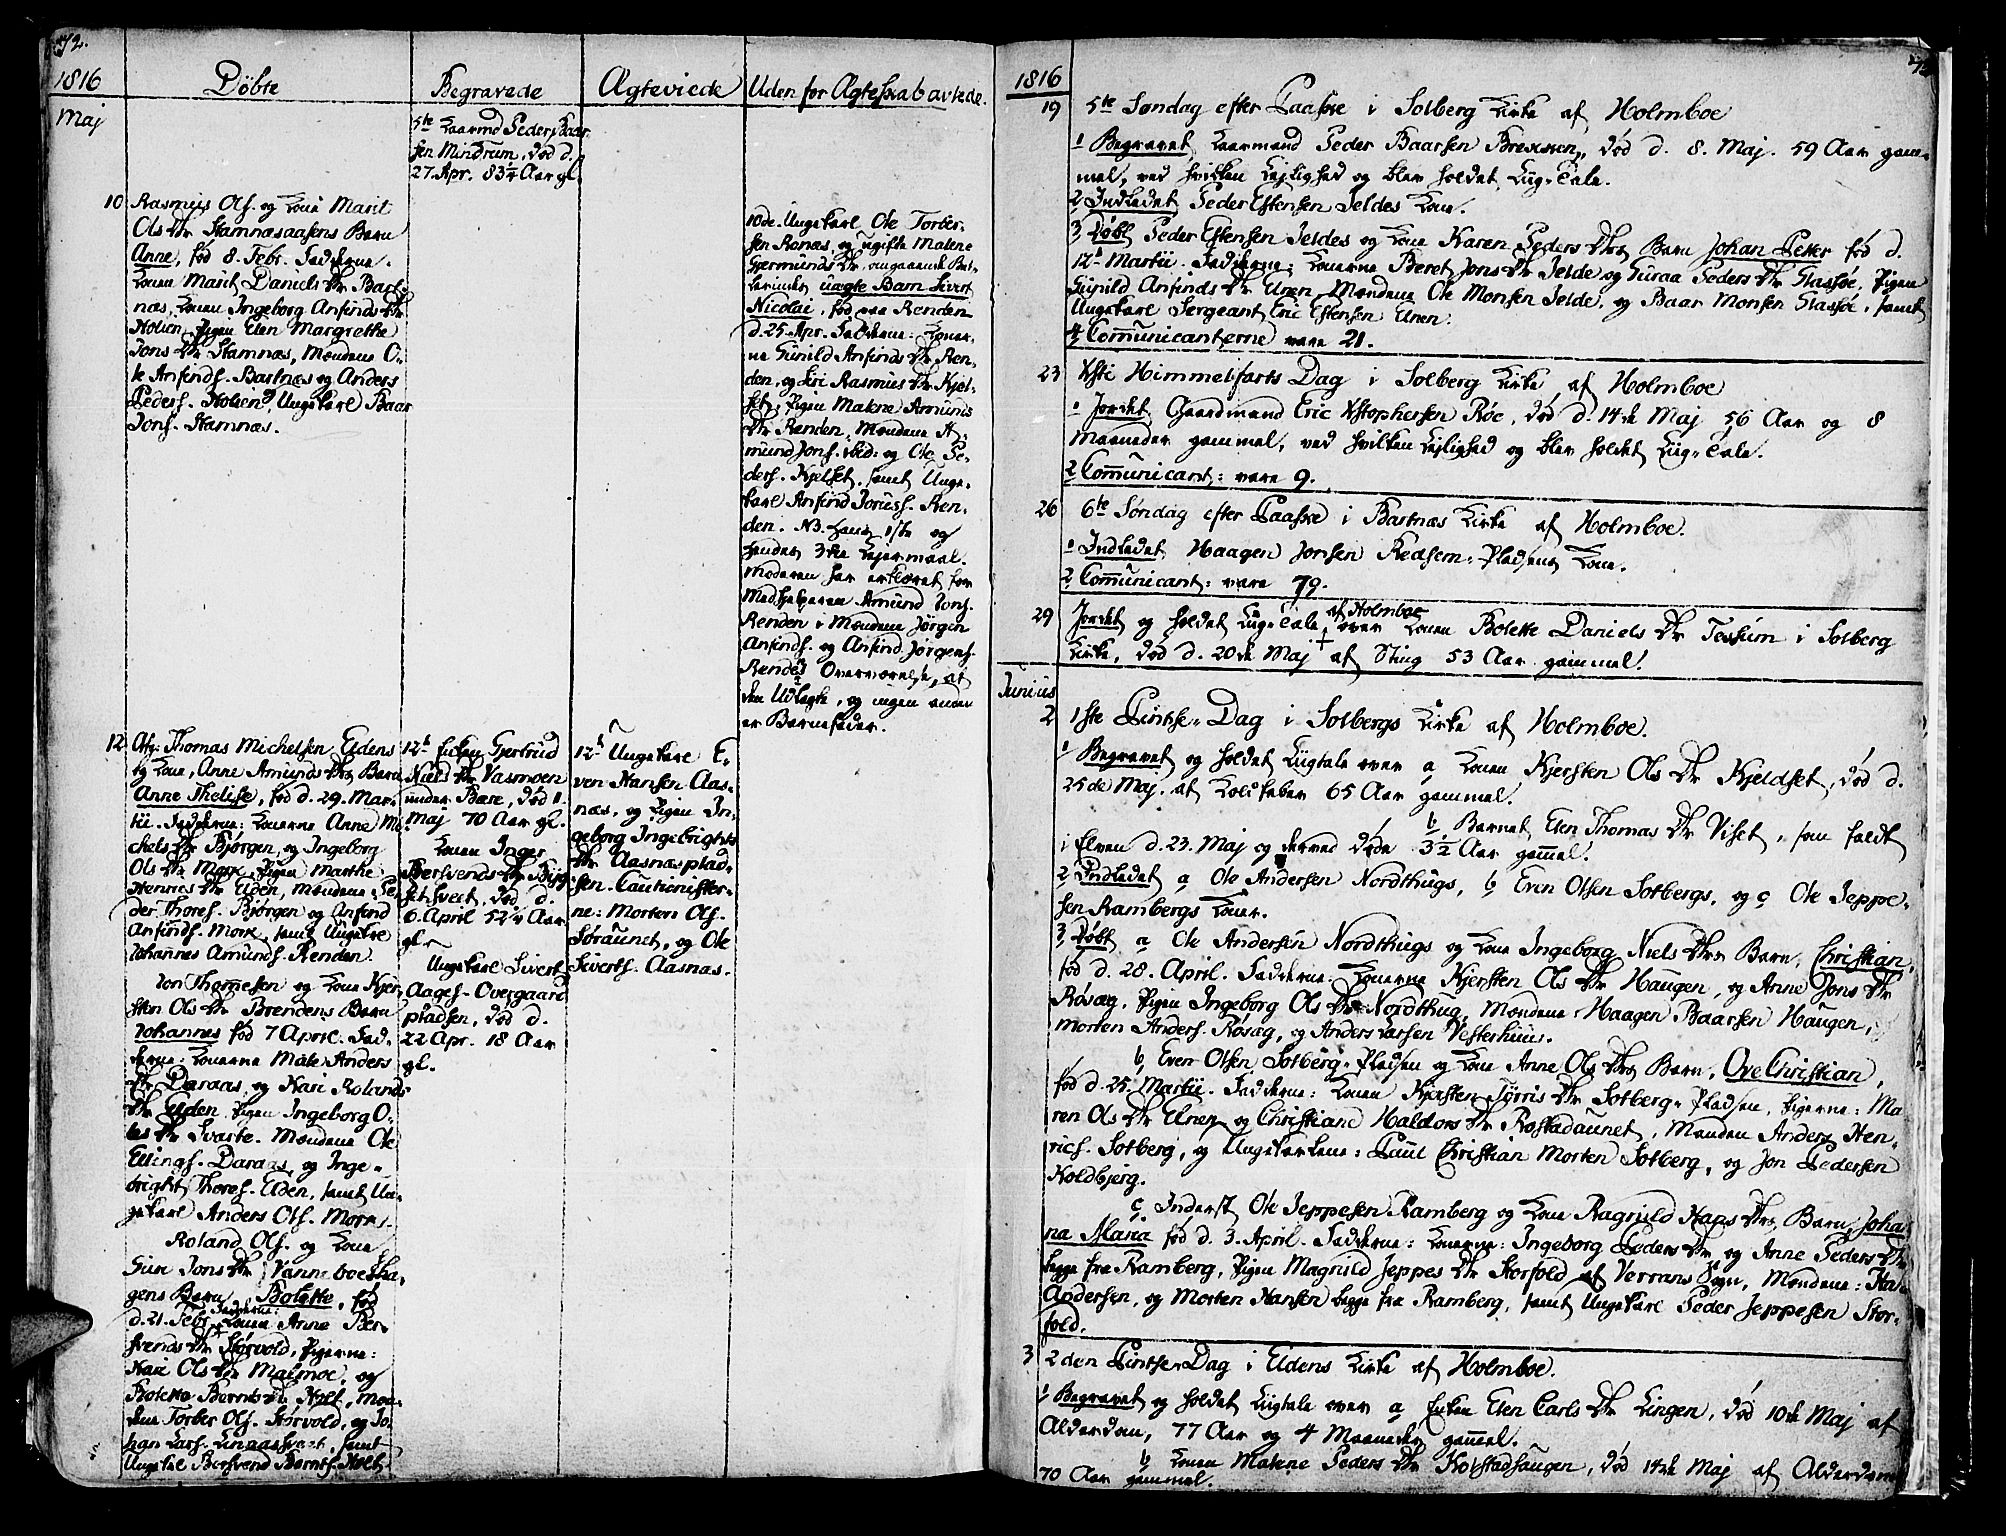 72.
1816
Döbte
Begravede
Ægteviede
Uden for Ægteskab avlede.
Maj
5te Kaarmd Peder Baar
sen Mindrum, död d.
27 Apr. 83¼ Aar gl.
10 Rasmus Ols. og Kone Marit
Ols Dr Stamnæsaasens Barn
Anne, fód 8 Febr. Fadderne.
Konen Marit Daniels Dr Bart-
næs, Konen Ingeborg Anfinds Dr
Holien, Pigen Elen Margrethe
Jons Dr Stamnæs, Mændene O-
le Anfinds. Bastnæs og Anders
Peders. Holien, Ungekarl Baar
Jons. Stamnæs.
10de. Ungekarl Ole Torber-
sen Renæs, og ugifte Malene
Gjermunds Dr, angaaende
uægte Barn Sivert
Nicolai, fód paa Renden
d. 25 Apr. Fadderne: Koner-
ne Gunild Anfinds Dr Ren-
den, og Siri Rasmus Dr Kjel-
set, Pigen Malene Amunds
Dr Renden, Mændene A-
mund Jons. ibid: og Ole Pe-
ders. Kjelset, samt Unge-
karl Anfind Joruss. Ren-
den. NB. hans 1ste og
hendes 3die Lejermaal.
Moderen har erklæret for
Medhjelperen Amund Jons.
Renden i Mændene Jørgen
Anfinds. og Anfind Jørgens.
Rendes Overværelse, at
den Udlagte, og ingen anden
er Barnefader.
12 Thomas Michelsen Eldens
og Kone, Anne Amunds Drs Barn
Anne Thelise, fód d. 29. Mar-
tii. Fadderne: Konerne Anne Mi-
chels Dr Bjørgen, og Ingeborg
Ols Dr Mork, Pigen Marthe
Hennes Dr Elden, Mændene Pe-
der Thores. Bjørgen og Anfind
Anfinds. Mork, samt Ungekarl
Johannes Amunds. Renden.
Jon Thomesen og Kone Kjer-
sten Ols Dr Brendens Barn
Johannes fód 7 April. Fad-
derne: Konerne Male Anders
Dr Daraas, og Kari Rolands
Dr Elden, Pigen Ingeborg O-
les Dr Svarte. Mændene Ole
Ellings. Daraas, og Inge-
bright Thores. Elden, samt Un-
gekarl Anders Ols. Morks.
Roland Ols. og Kone
Guri Jons Dr Vanneboesha-
gens Barn Bolette, fód
d. 21. Febr. Fadderne: Konen Anne Ber-
svends Dr Störvold, Pigerne:
Kari Ols Dr Malmoe, og
Bolette Bernts Dr Holt, Mæn-
dene Torber Ols. Störvold, og Jo-
han Lars. Linaashvedt, samt
Ungekl Bersvend Bernts. Holt.
12te Enken Gjertrud
Niels Dr Vasmoen
under Bære, död 1.
Maj 70 Aar gl.
Konen Inger
Bersvends Dr
död d.
6 April 52¼ Aar
gl.
Ungekarl Sivert
Aages. Overgaard
pladsen, död d.
22 Apr. 18 Aar
gl.
12te Ungekarl E-
ven Hansen Aas-
næs, og Pigen In-
geborg Ingebrights
Dr Aasnæsplad-
sen. Cautionister-
ne: Morten Ols.
Söraunet, og Ole
Siverts. Aasnæs.
1816
19 5te Søndag efter Paaske i Solberg Kirke af Holmboe
1 Begravet Kaarmand Peder Baarsen Brekken, död d. 8. Maj. 59 Aar gam-
mel, ved hvilken Lejlighed og blev holdet Liig-Tale.
2, Indledet Peder Estensen Jeldes Kone.
3, Döbt Peder Estensen Jeldes og Kone Karen Peders Drs Barn Johan Petter fód d.
12te Martii. Fadderne: Konerne Beret Jons Dr Jelde og Guraa Peders Dr Slassöe, Pigen
Gunild Anfinds Dr Elnen, Mændene Ole Monsen Jelde, og Baar Monsen Slassöe, samt
Ungekarl Sergeant Eric Estensen Elnen.
4 Communicanterne vare 21.
23 Xsti Himmelfarts Dag i Solberg Kirke af Holmboe
1 Jordet Gaardmand Eric Xstophersen Röe, död d. 14de Maj 56 Aar og 8
Maaneder gammel, ved hvilken Lejlighed og blev holdet Liig-Tale.
2 Communicant: vare 9.
26 6te Søndag efter Paaske i Bastnæs Kirke af Holmboe.
1 Indledet Haagen Jonsen Redsem-Pladsens Kone.
2 Communicant: vare 79.
29 Jordet og holdet Liig-Tale af Holmboe over Konen Bolette Daniels Dr Tessum i Solberg
Kirke, död d. 20de Maj af Sting 53 Aar gammel.
Junius
2 1ste Pintse-Dag i Solbergs Kirke af Holmboe.
1 Begravet og holdet Liigtale over a, Konen Kjersten Ols Dr Kjeldset, död d.
25de Maj. af Koldfeber 65 Aar gammel.
b, Barnet Elen Thomas Dr Viset, som faldt
i Elven d. 23. Maj og derved döde 3½ Aar gammel.
2, Indledet a, Ole Andersen Nordthugs, b, Even Olsen Solbergs, og c, Ole Jeppe-
sen Rambergs Koner.
3, Döbt a, Ole Andersen Nordthugs og Kone Ingeborg Niels Drs Barn, Christian,
fód d. 28. April. Fadderne: Konerne Kjersten Ols Dr Haugen, og Anne Jons Dr
Rösæg, Pigen Ingeborg Ols Dr Nordthug, Mændene Haagen Baarsen Haugen,
Morten Anders. Rösæg, og Anders Larsen Vesterhuus.
b, Even Olsen Solberg-Pladsen og Kone Anne Ols Drs Barn, Ove Christian,
fód d. 25. Martii. Fadderne: Konen Kjersten Törris Dr Solberg-Pladsen, Pigerne: Ma-
ren Ols Dr Elnen og Christiane Haldors Dr Rostadaunet, Manden Anders Hen-
rics. Solberg, og Ungekarlene: Paul Christian Morten Solberg, og Jon Pedersen
Holdbjerg.
c, Inderst Ole Jeppesen Ramberg og Kone Ragnild Hans Drs Barn, Joha-
na Maria fód d. 3. April. Fadderne: Konerne: Ingeborg Peders Dr og Anne Peders Dr
begge fra Ramberg, Pigen Magnild Jeppes Dr Storfold af Verrans Sogn, Mændene:
Andersen, og Morten Hansen begge fra Ramberg, samt Ungekarl Peder Jeppesen Stor-
fold.
3 2den Pintse-Dag i Eldens Kirke af Holmboe.
1, Begravet og holdet Liigtale over a, Enken Elen Carls Dr Lingen, död 10de Maj af
Alderdom, 77 Aar og 4 Maaneder gammel.
b, Konen Malene Peders Dr Kolstadhaugen, död 14de Maj af Alderdom
70 Aar gammel.